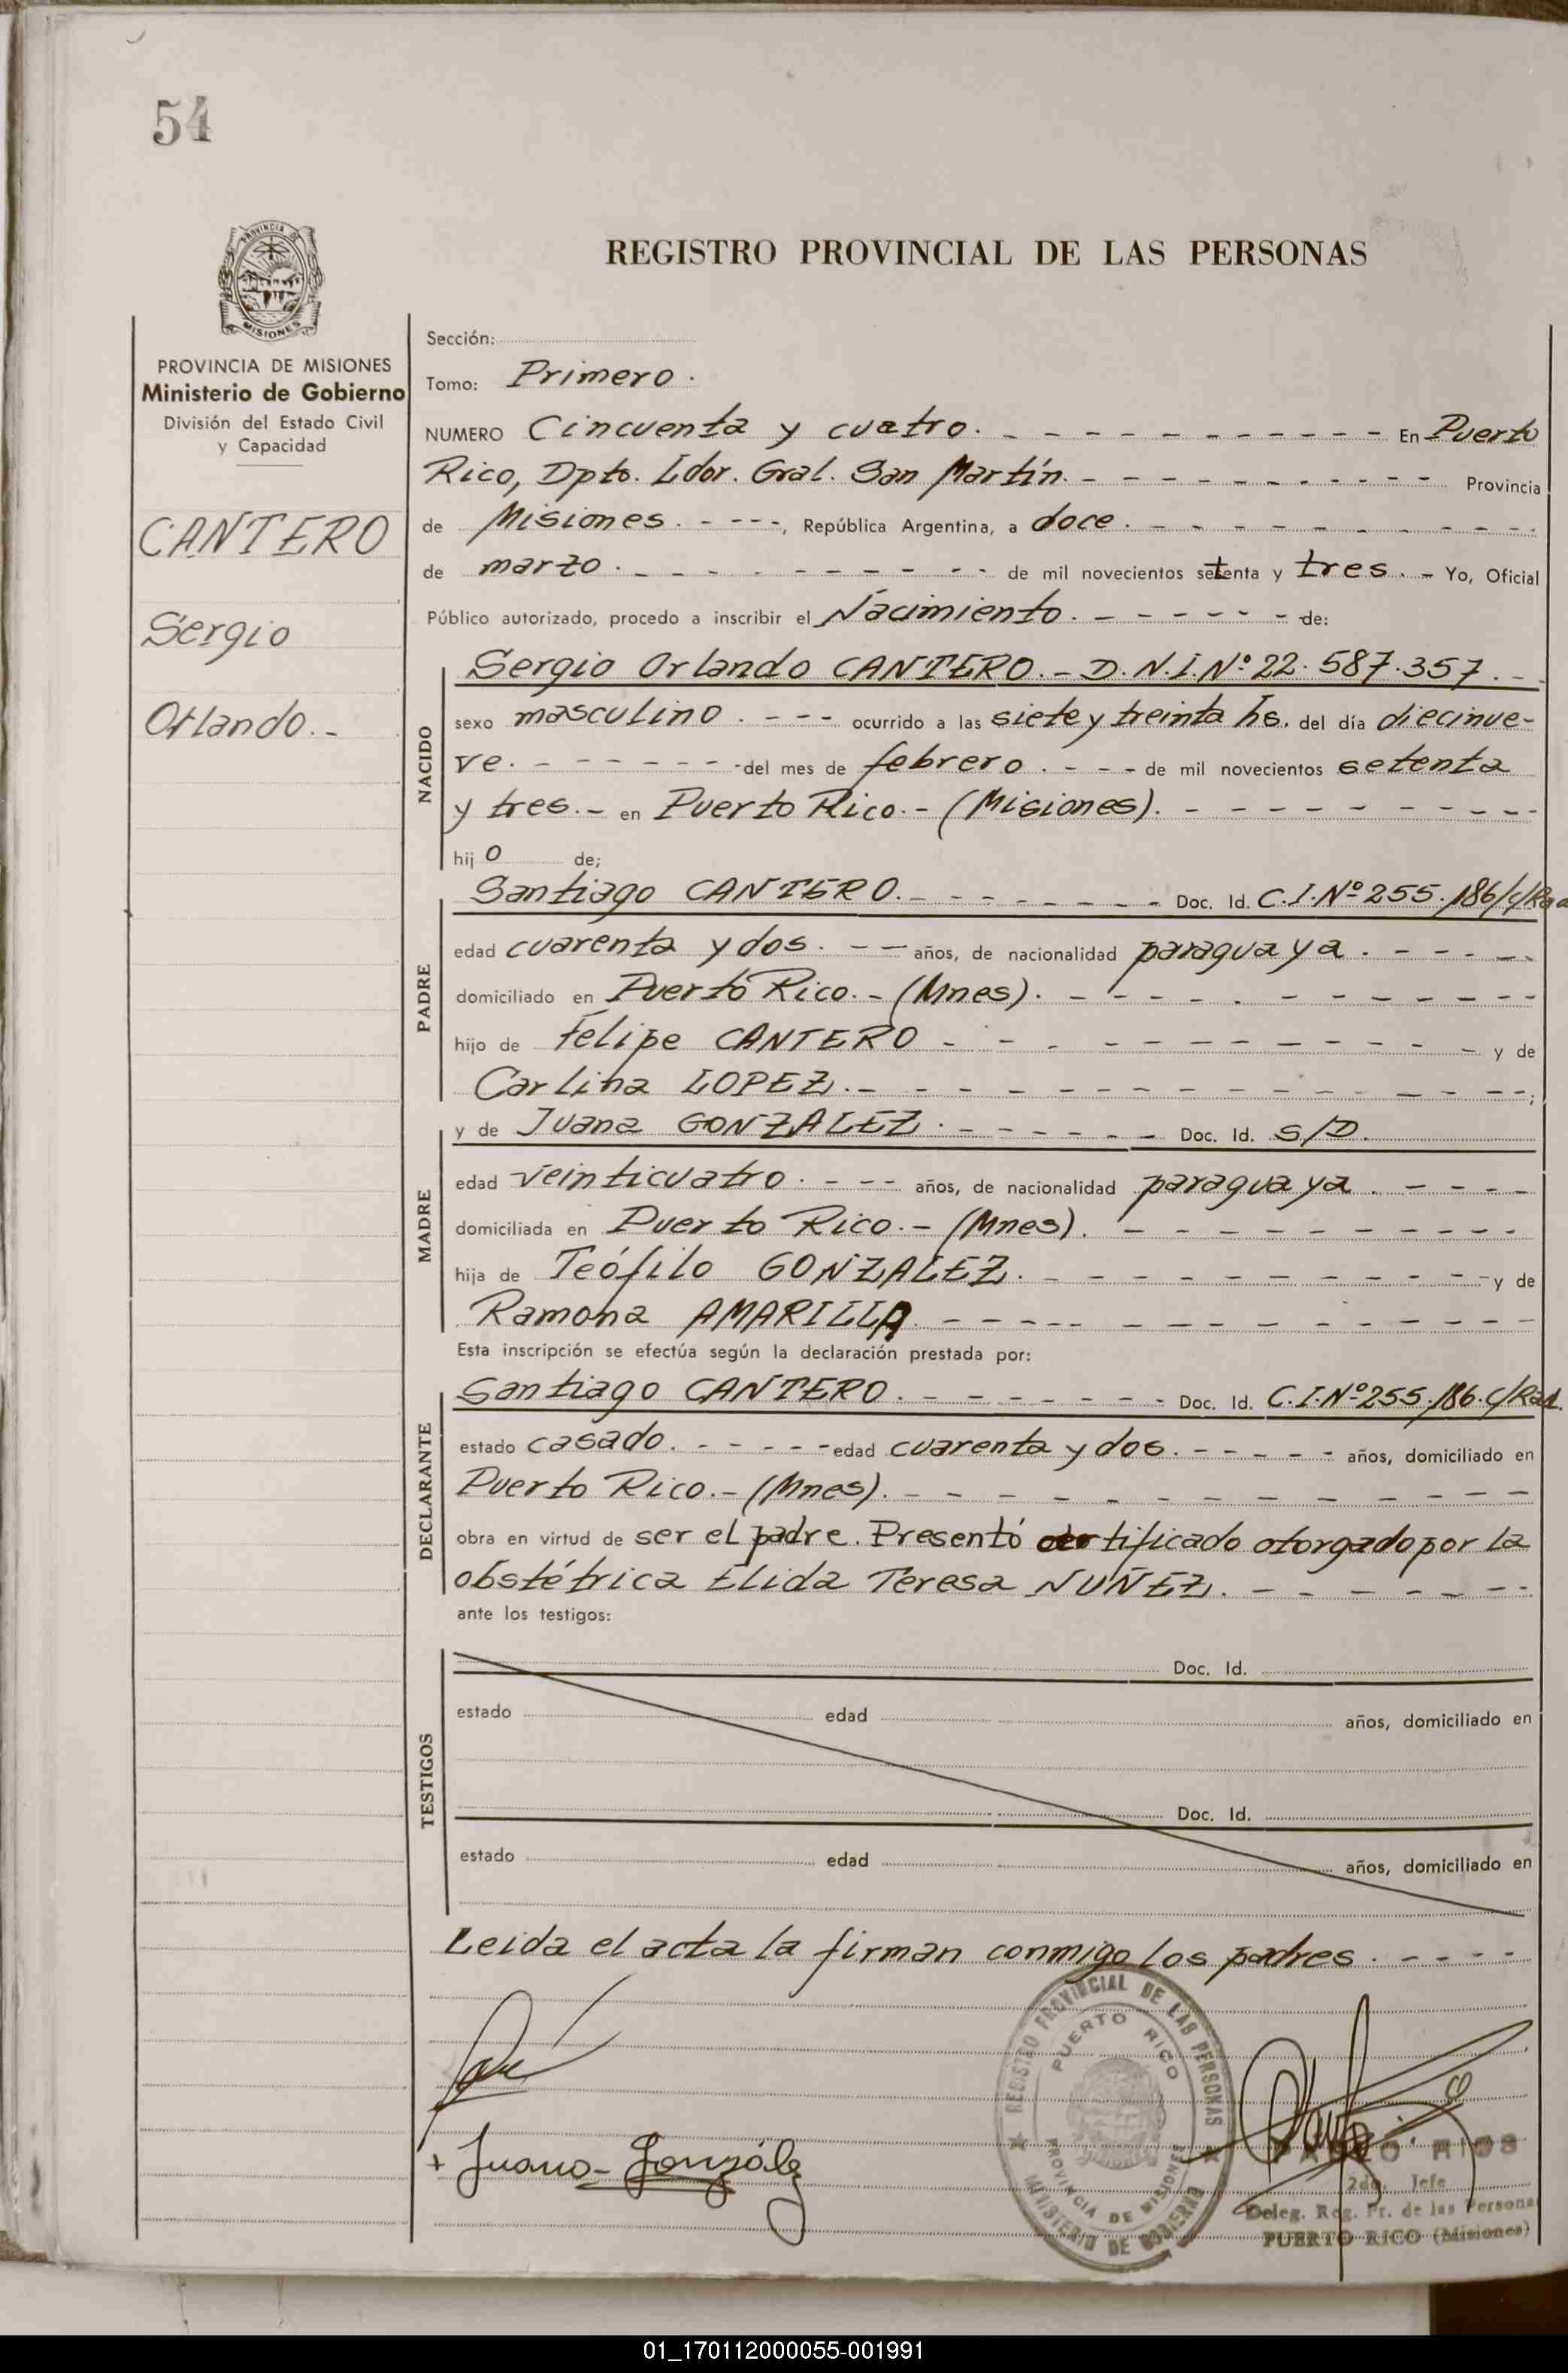 54
PROVINCIA DE
MISIONES
REGISTRO PROVINCIAL DE LAS PERSONAS
PROVINCIA DE MISIONES
Ministerio de Gobierno
División del Estado Civil
y Capacidad
CANTERO
Sergio
Orlando.-
Sección:
Tomo: Primero.
NUMERO Cincuenta y cuatro. - - - En Puerto
Rico, Dpto. Ldor. Gral. San Martín. - - - Provincia
de Misiones. - - - -, República Argentina, a doce. - - -
de marzo. - - - de mil novecientos setenta y tres. - Yo, Oficial
Público autorizado, procedo a inscribir el Nacimiento. - - - de:
NACIDO
Sergio Orlando CANTERO. - D.N.I.Nº 22.587.357. - -
sexo masculino. - - - ocurrido a las siete y treinta hs. del día diecinue-
ve. - - - del mes de febrero. - - - de mil novecientos setenta
y tres. - en Puerto Rico. - (Misiones). - - -
hijo de;
PADRE
Santiago CANTERO. - - - Doc. Id. C.I.Nº 255.186/c/Rad
edad cuarenta y dos. - - años, de nacionalidad paraguaya. - - -
domiciliado en Puerto Rico. - (Mnes). - - -
hijo de Felipe CANTERO - - - y de
Carlina LOPEZ. - - - ;
MADRE
y de Juana GONZALEZ. - - - Doc. Id. S/D.
edad veinticuatro. - - - años, de nacionalidad paraguaya. - - -
domiciliada en Puerto Rico. - (Mnes). - - -
hija de Teófilo GONZALEZ. - - - y de
Ramona AMARILLA. - - -
Esta inscripción se efectúa según la declaración prestada por:
DECLARANTE
Santiago CANTERO. - - - Doc. Id. C.I.Nº 255.186.c/Rad.
estado casado. - - - edad cuarenta y dos. - - - años, domiciliado en
Puerto Rico. - (Mnes). - - -
obra en virtud de ser el padre. Presentó certificado otorgado por la
obstétrica Elida Teresa NUÑEZ. - - -
ante los testigos:
TESTIGOS
Doc. Id.
estado edad años, domiciliado en
Doc. Id.
estado edad años, domiciliado en
Leida el acta la firman conmigo los padres. - - -
REGISTRO PROVINCIAL DE LAS PERSONAS
PUERTO RICO
PROVINCIA DE MISIONES
MINISTERIO DE GOBIERNO
+ Juana - González
RIOS
2do. Jefe
Deleg. Reg. Pr. de las Personas
PUERTO RICO (Misiones)
01_170112000055-001991